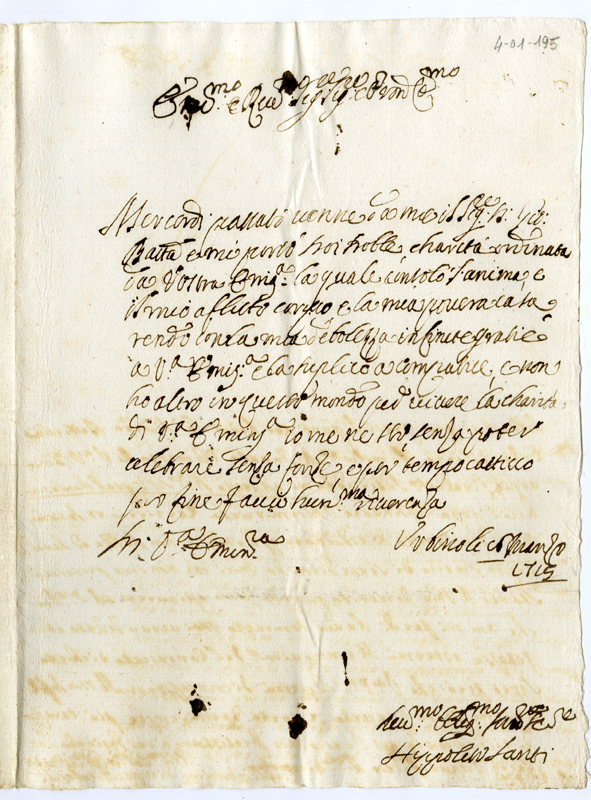 4-01-195
Em.mo e Rev.mo Sig.re Sig.re e Pron Col.mo
Mercordì passato venne da me il Sig.re D: Gio:
Batta e mi portò noi noble charità ordinata
da Vostra Emin.a la quale consolò l'anima, e
il mio aflitto corpo e la mia povera casa
rendo con la mia debolezza infinite gratie
a V.a Emin.a e la suplico a compatire, e non
ho altro in questo mondo per vivere la charità
di V.a Emin.a Io me ne sto senza poter
celebrare senza forze, e per tempo cattivo
per fine faccio hum.ma riverenza
Di V.a Emin.za
Urbino li Marzo
1715
Hum.mo Oblig.mo Servitore
Hippolito Santi